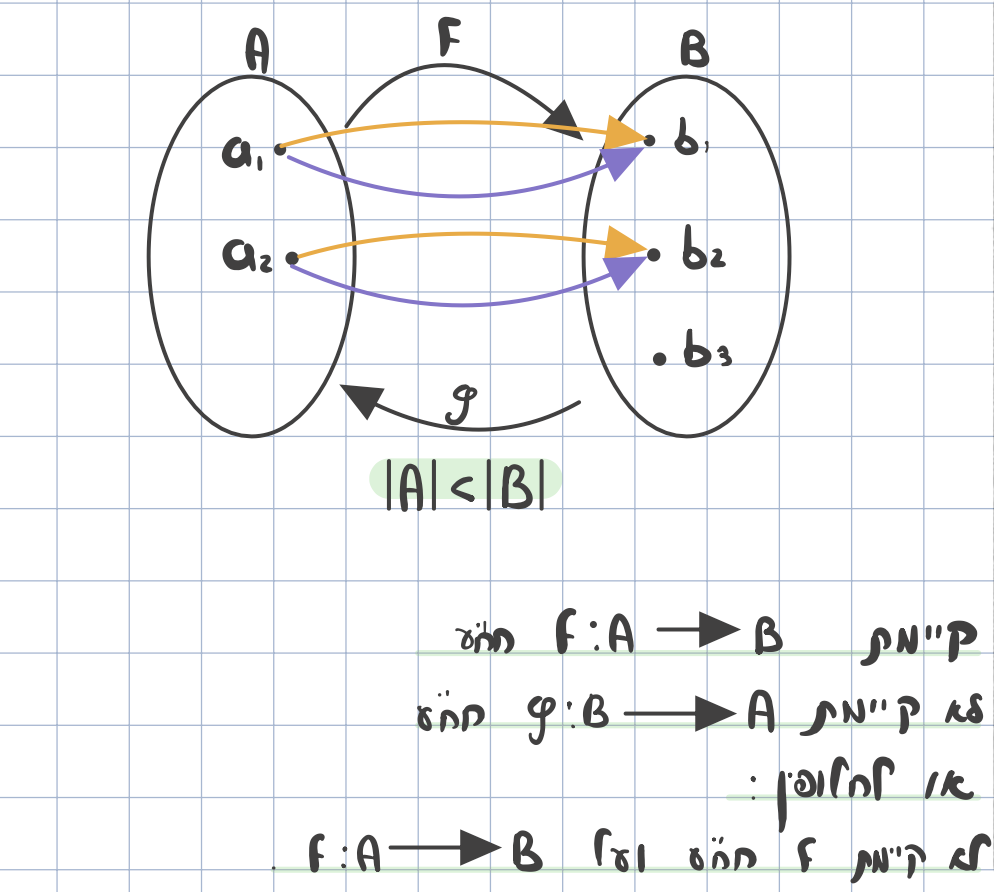 A F B
a₁ b₁
a₂ b₂
b₃
g
|A| < |B|
קיימת F: A → B חח"ע
לא קיימת g: B → A חח"ע
או לחלופין:
לא קיימת F חח"ע ועל F: A → B.